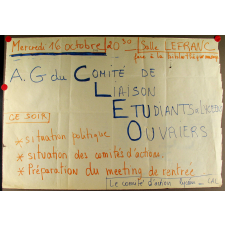 Mercredi 16 octobre 20 30 Salle LEFRANC
face à la bibliothèque
A.G du COMITÉ DE
LIAISON
ETUDIANTS
OUVRIERS
CE SOIR
* situation politique
* situation des comités d'actions.
* Préparation du meeting de rentrée
Le comité d'action lycéen - CAL